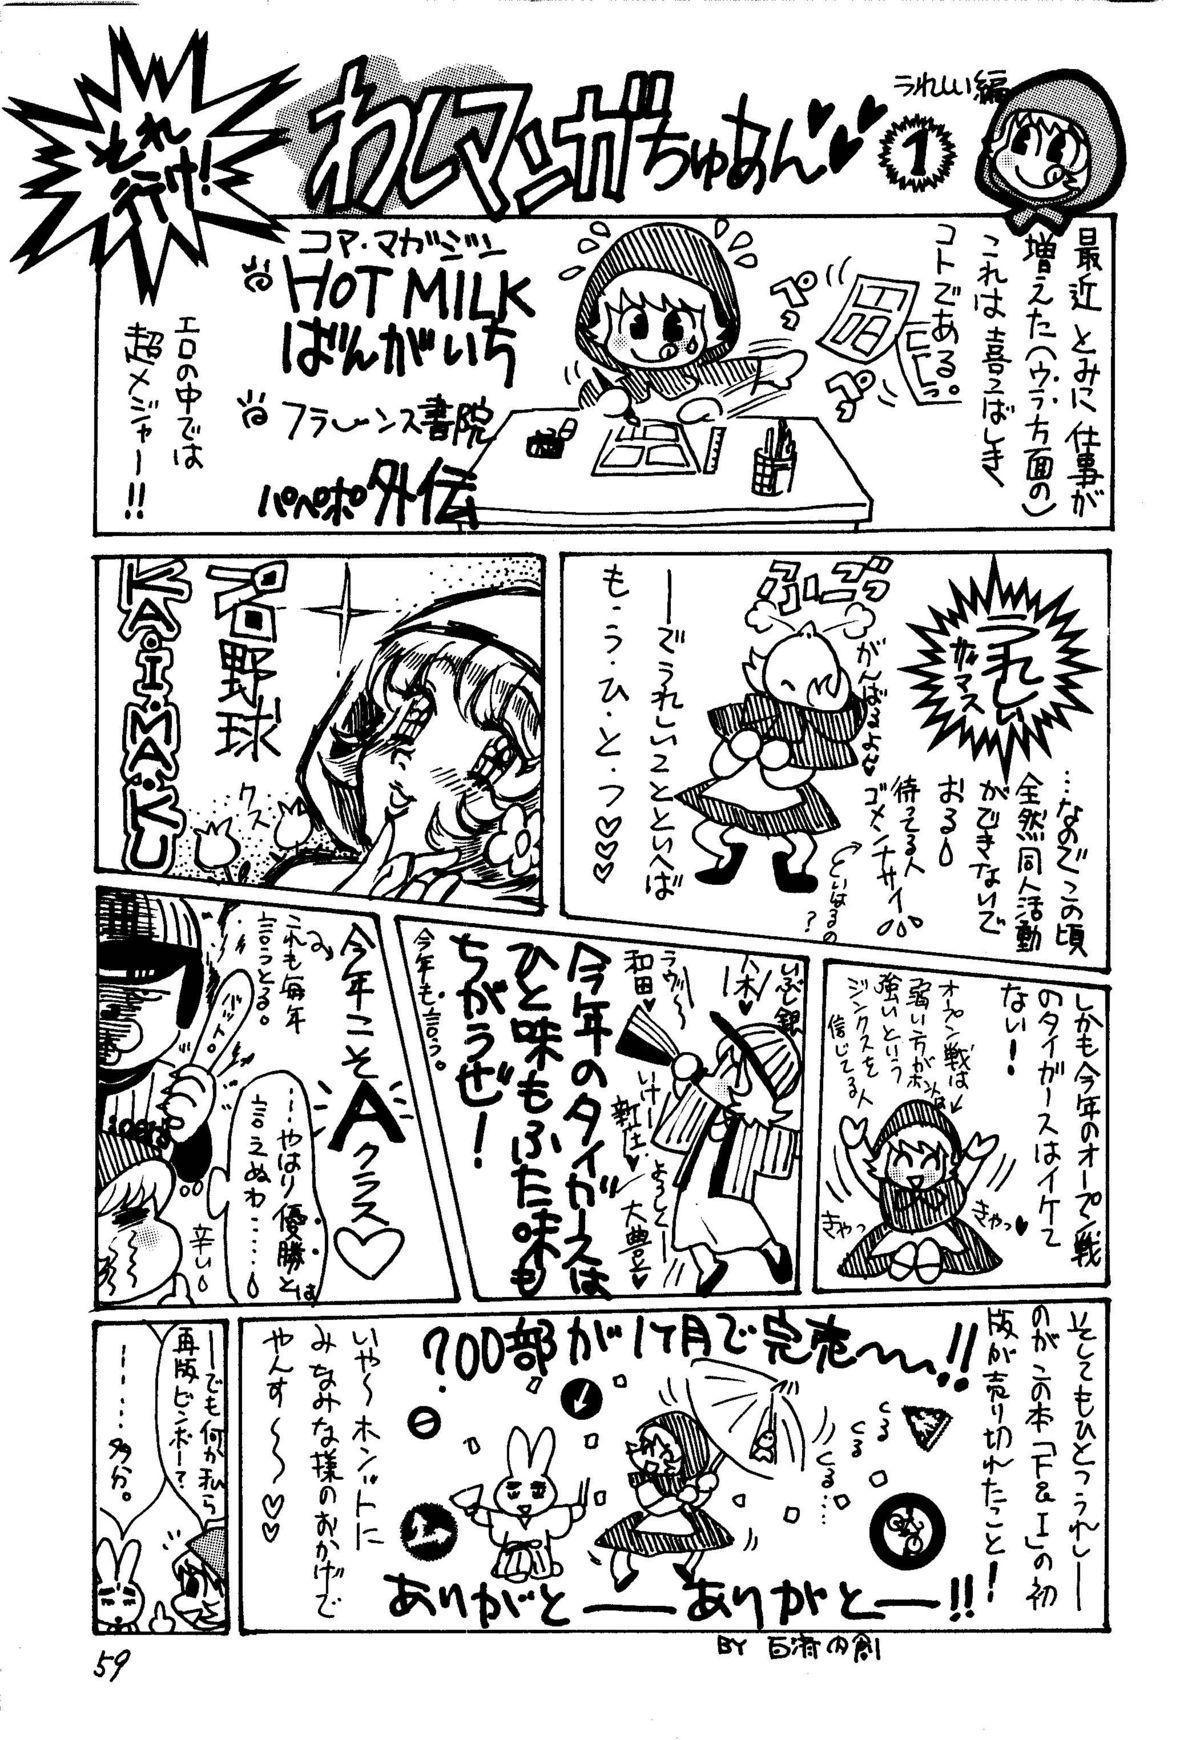 それ
行け!
わしマンガちゅあん♥♥
1
うれしい編
最近 とみに 仕事が
増えた(ウラ方面の)
これは喜こばしき
コトである。
ペっ
ペっ
コア・マガジン
HOT MILK
ばんがいち
フランス書院
パペポ外伝
エロの中では
超メジャー!!
うれしい
ザマス
…なのでこの頃
全然同人活動
ができないで
おる
待ってる人
ゴメンナサイ
がんばるよん♥
ふごっ
――でうれしいことといえば
も・う・ひ・と・つ♡♡♡
野球
KA・I・MA・KU
クス
しかも今年のオープン戦
のタイガースはイケて
ない!
オープン戦は
弱い方がホンバンは
強いという
ジンクスを
信じてる人
きゃっ
きゃっ♥
いぶし銀
八木♥
ラヴ〜
和田♥
いけー
新庄
大豊♥
今年のタイガースは
ひと味もふた味も
ちがうぜ!
今年も言う。
今年こそ
Aクラス♡
これも毎年
言うとる。
igers
…やはり優勝とは
言えぬわ……
辛い
そしてもひとつうれしー
のがこの本「F&I」の初
版が売り切れたっこと!
700部が1ヶ月で完売〜!!
くる
くる
くる…
ありがと――ありがと――!!
いや〜ホンットに
みなみな様のおかげで
やんす〜〜♡♡
――でも何か私ら
再版ビンボー?
……多分。
BY
59